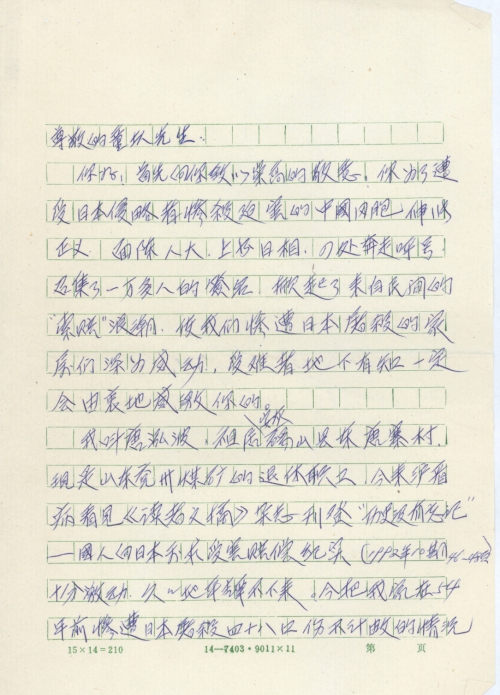 尊敬的童增先生：
你好，首先向你致以崇高的敬意。你为了遭
受日本侵略者惨杀迫害的中國同胞伸张
正义 面陈人大，上书日相，四处奔走呼号
召集了一万多人的签名 掀起了来自民间的
“索赔”浪潮。使我们惨遭日本屠杀的家
属们深为感动，受难者地下有知一定
会由衷地感激你的。
我叫唐泓波，祖居 砀山县 唐寨村，
现是山东兖州煤矿的退休职工 今来 看
病看见《读者文摘》 刊登“历史没有忘记”
——國人向日本 求受害赔偿纪实（1992年
十分激动，久久地平静不下来。今把我家在54
年前惨遭日本屠杀四十八口伤不计数的情况
15×14=210 14—7403·9011×11 第 页